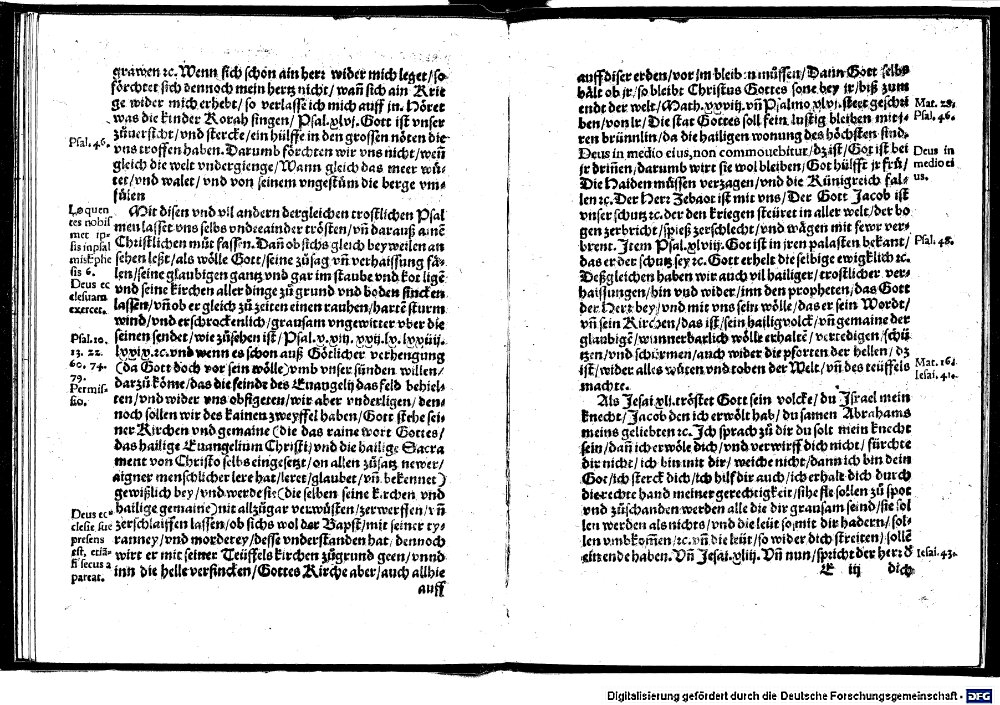 grawen ꝛc. Wenn sich schon ain herꝛ wider mich leget/so
förchtet sich dennoch mein hertz nicht/wañ sich ain Krie
ge wider mich erhebt/so verlasse ich mich auff in. Höret
was die kinder Korah singen/Psal. xlvj. Gott ist vnser
zůuersicht/vnd stercke/ein hülffe in den grossen nöten die
vns troffen haben. Darumb förchten wir vns nicht/weñ
gleich die welt vndergienge/Wann gleich das meer wů-
tet/vnd walet/vnd von seinem vngestům die berge vm-
fůlen
Psal. 46.
Mit disen vnd vil andern dergleichen trostlichen Psal
men lasset vns selbs vndereainder trösten/vñ darauß ainē
Christlichen můt fassen. Dañ ob sichs gleich beyweilen an
sehen leßt/als wölle Gott/seine zůsag vñ verhaissung fä-
len/seine glaubigen gantz vnd gar im staube vnd kot ligē
vnd seine kirchen aller dinge zů grund vnd boden sincken
lassen/vñ ob er gleich zů zeiten einen rauhen/hartē sturm
wind/vnd erschrockenlich/grausam vngewitter vber die
seinen sendet/wie zůsehen ist/Psal.
ꝛc. vnd wenn es schon auß Götlicher verhengung
(da Gott doch vor sein wölle) vmb vnser sünden willen/
darzů köme/das die feinde des Euangelij das feld behiel-
ten/vnd wider vns obsigeten/wir aber vnderligen/den-
noch sollen wir des kainen zweyffel haben/Gott stehe sei-
ner Kirchen vnd gemaine (die das raine wort Gottes/
das hailige Euangelium Christi/vnd die hailige Sacra
ment von Christo selbs eingesetzt/on allen zůsatz newer/
aigner menschlicher lere hat/leret/glaubet/vñ bekennet)
gewißlich bey/vnd werde sie (die selben seine kirchen vnd
hailige gemaine) nit allzůgar verwüsten/zerwerffen/vñ
zerschlaiffen lassen/ob sichs wol der Bapst/mit seiner ty-
ranney/vnd morderey/desse vnderstanden hat/dennoch
wirt er mit seiner Teüffels kirchen zůgrund geen/vnnd
inn die helle versincken/Gottes Kirche aber/auch allhie
auff
Loquen
tes nobis
met ip-
sis in psal
mis Ephe
sis 6.
Deus ec
clesiam
exercet.
Psal. 10.
13. 22.
60. 74.
79.
Permis-
sio.
Deus ec-
clesie sue
presens
est, etiā
si secus a
pareat.
auff diser erden/vor jm bleiben müssen/Dann Gott selbs
hålt ob jr/so bleibt Christus Gottes sone bey jr/biß zum
endt der welt/Math. xxviij. vñ Psalmo xlvj. steet geschri
ben/von jr/Die stat Gottes soll fein lustig bleiben mit j-
ren brünnlin/da die hailigen wonung des höchsten sind.
Deus in medio eius, non commouebitur/dz ist/Got ist bei
jr driñen/darumb wirt sie wol bleiben/Got hülfft jr frů/
Die Haiden müssen verzagen/vnd die Künigreich fal-
len ꝛc. Der Herꝛ Zebaot ist mit vns/Der Gott Jacob ist
vnser schutz ꝛc. der den kriegen steüret in aller welt/der bo
gen zerbricht/spieß zerschlecht/vnd wågen mit fewr ver-
brent. Item Psal. xlviij. Got ist in jren palasten bekant/
das er der schutz sey ꝛc. Gott erhelt die selbige ewigklich ꝛc.
Deßgleichen haben wir auch vil hailiger/trostlicher ver-
haissungen/hin vnd wider/inn den propheten/das Gott
der Herꝛ bey/vnd mit vns sein wölle/das er sein Wordt/
vñ sein Kirchen/das ist/sein hailig volck/vñ gemaine der
glaubigē/wunnerbarlich wölle erhaltē/vertedigen/schü
tzen/vnd schirmen/auch wider die pforten der hellen/dz
ist/wider alles wůten vnd toben der Welt/vñ des teüffels
machte.
Als Jesai. xli. tröstet Gott sein volcke/du Israel mein
knecht/Jacob den ich erwölt hab/du samen Abrahams
meins geliebten ꝛc. Ich sprach zů dir du solt mein knecht
sein/dañ ich erwöle dich/vnd verwirff dich nicht/fürchte
dir nicht/ich bin mit dir/weiche nicht/dann ich bin dein
Got/ich sterck dich/ich hilf dir auch/ich erhalt dich durch
die rechte hand meiner gerechtigkeit/sihe sie sollen zů spot
vnd zůschanden werden alle die dir gram seind/sie sol
len werden als nichts/vnd die leüt so mit dir hadern/sol-
len vmbkom̃en/ꝛc. vñ die leüt/so wider dich streiten/sollē
ein ende haben. Vñ Jesai. xliij. Vñ nun/spricht der herꝛ d̄
E iij dich
Mat. 28.
Psal. 46.
Deus in
medio ei
us.
Psal. 48.
Mat. 16.
Iesai. 41.
Iesai. 43.
Digitalisierung gefördert durch die Deutsche Forschungsgemeinschaft - DFG